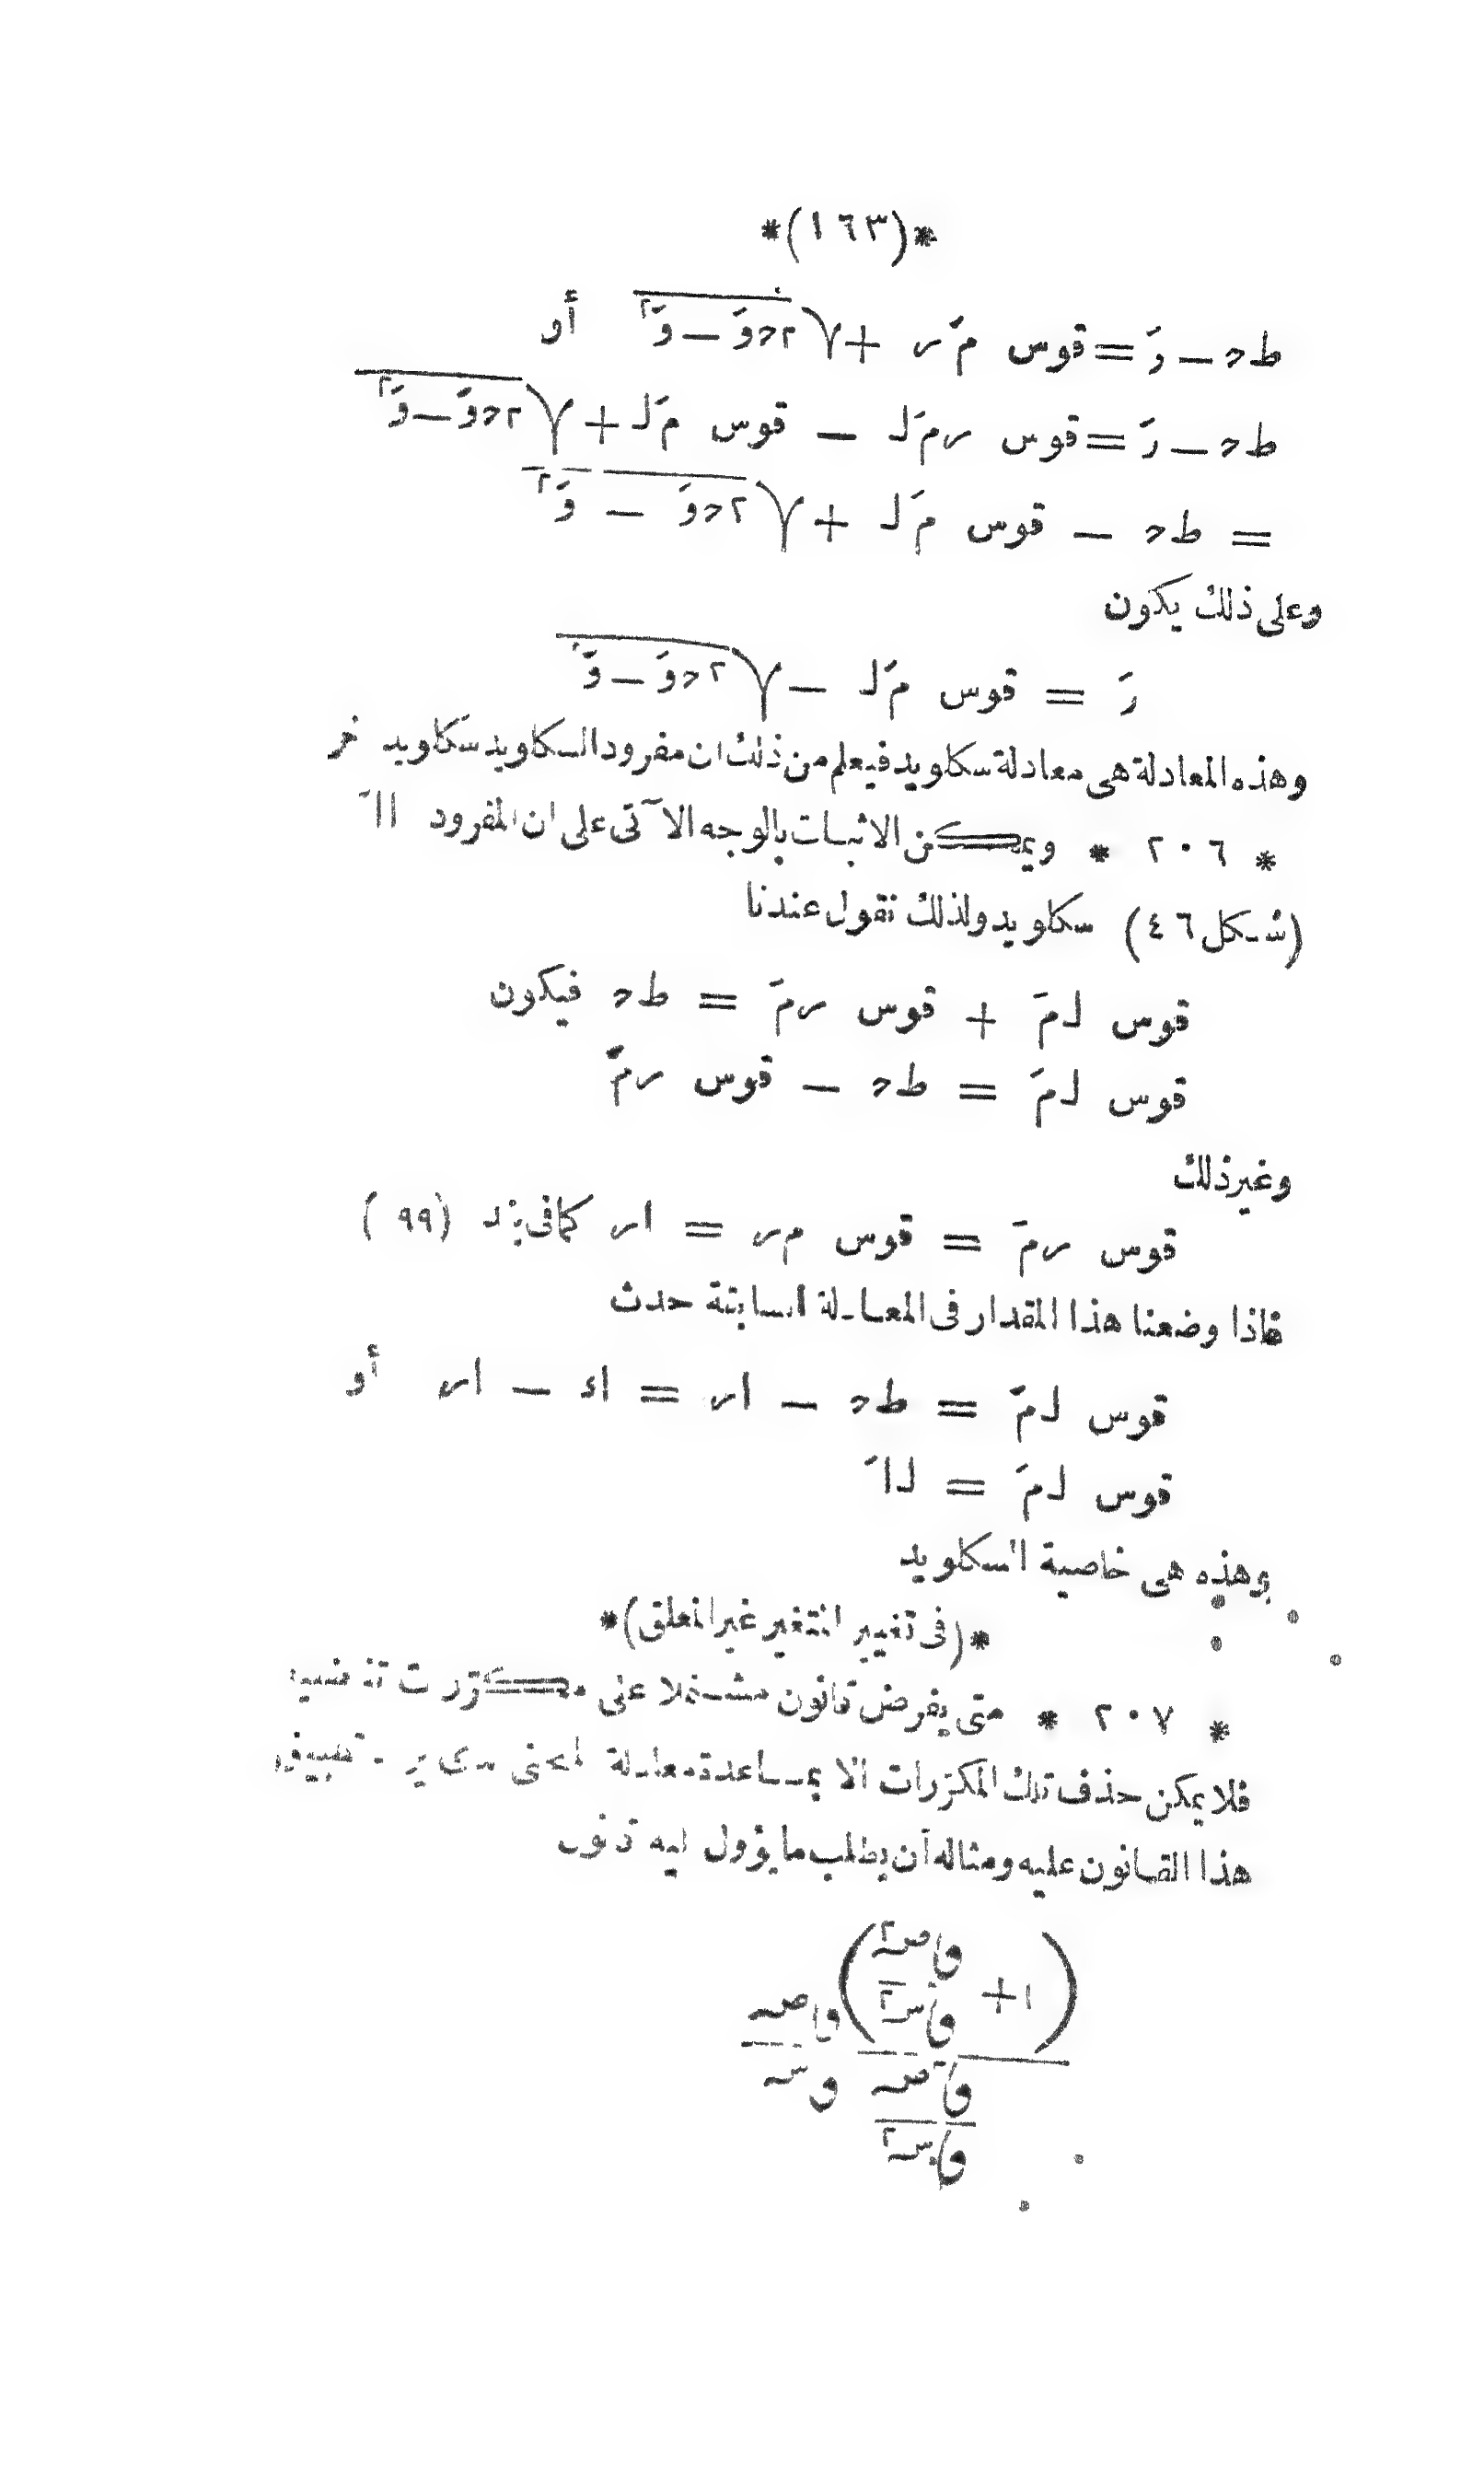 *(١٦٣)*
ط‍ح‍ ـ رَ = قوس مَ ر + √٢ح‍وَ ـ وَ٢ أو
ط‍ح‍ ـ رَ = قوس ر مَ ل ـ قوس مَ ل + √٢ح‍وَ ـ وَ٢
= ط‍ح‍ ـ قوس مَ ل + √٢ح‍وَ ـ وَ٢
وعلى ذلك يكون
رَ = قوس مَ ل ـ √٢ح‍وَ ـ وَ٢
وهذه المعادلة هى معادلة سكاويد فيعلم من ذلك ان مفرود السكاويد سكاويد
* ٢٠٦ * ويمكن الاثبات بالوجه الآتى على ان المفرود ااَ
(شكل ٤٦) سكاويد ولذلك نقول عندنا
قوس ل مَ + قوس ر مَ = ط‍ح‍ فيكون
قوس ل مَ = ط‍ح‍ ـ قوس ر مَ
وغير ذلك
قوس ر مَ = قوس م ر = ار كما فى بند (٩٩)
فاذا وضعنا هذا المقدار فى المعادلة السابقة حدث
قوس ل مَ = ط‍ح‍ ـ ار = اك ـ ار أو
قوس ل مَ = ل اَ
وهذه هى خاصية السكاويد
*(فى تغيير المتغير غير المعلق)*
* ٢٠٧ * متى يفرض قانون مشتملا على مكررات تفاضلية
فلا يمكن حذف تلك المكررات الا بمساعدة معادلة المنحنى تطبيق
هذا القانون عليه ومثاله أن يطلب ما يؤول اليه قانون
(١ + وا صـ٢ / وا سـ٢) وا صـ
و٢ صـ / وا سـ٢ و سـ